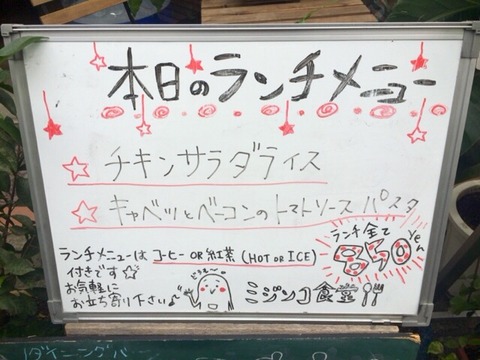 本日のランチメニュー
☆ チキンサラダライス
☆ キャベツとベーコンのトマトソース パスタ
ランチメニューは コーヒー OR 紅茶 (HOT OR ICE)
付きです☆
お気軽に
お立ち寄り下さい♪
ランチ全て
850 Yen
ミジンコ食堂
ダイニングバ